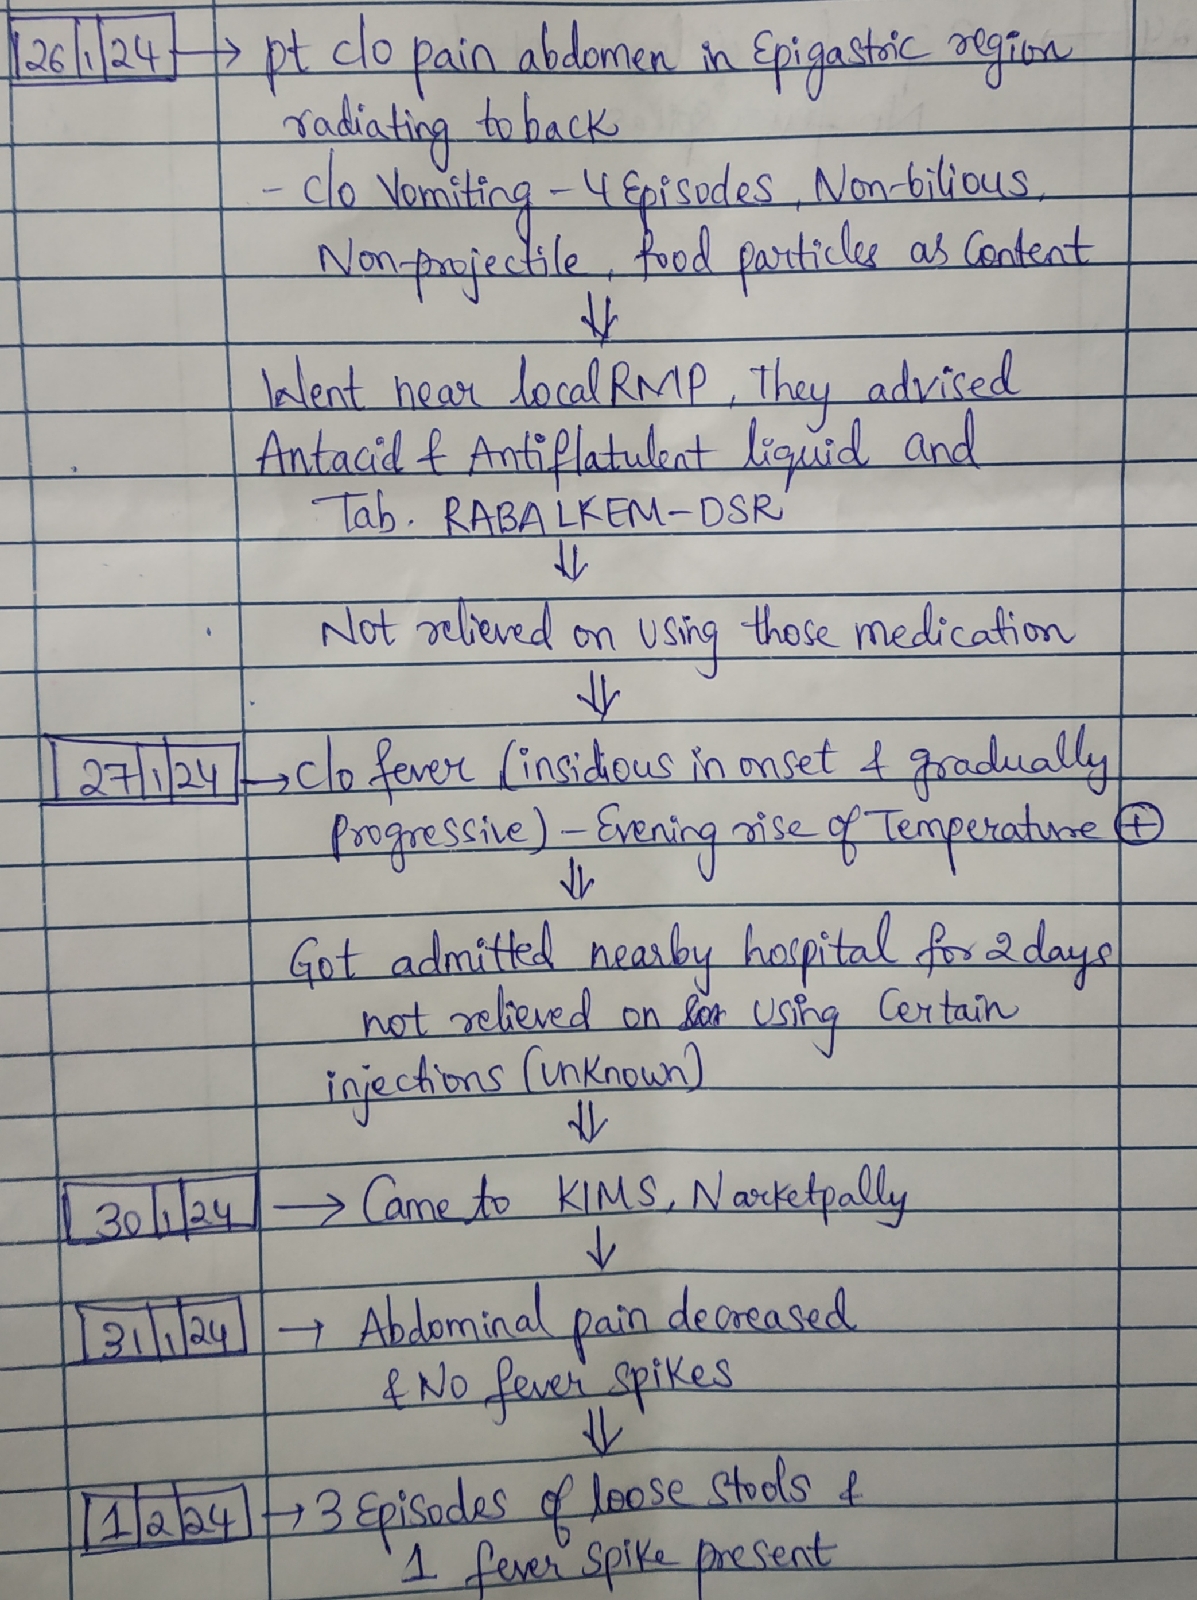 26|1|24 → pt c/o pain abdomen in Epigastric region
radiating to back
- c/o Vomiting - 4 Episodes, Non-bilious,
Non-projectile, food particles as Content
⇓
Went near local RMP, They advised
Antacid & Antiflatulent liquid and
Tab. RABALKEM-DSR
⇓
Not relieved on using those medication
⇓
27|1|24 → c/o fever (insidious in onset & gradually
progressive) - Evening rise of Temperature ⊕
⇓
Got admitted nearby hospital for 2 days
not relieved on using Certain
injections (unknown)
⇓
30|1|24 → Came to KIMS, Narketpally
↓
31|1|24 → Abdominal pain decreased
& No fever spikes
⇓
1|2|24 → 3 Episodes of loose stools &
1 fever spike present